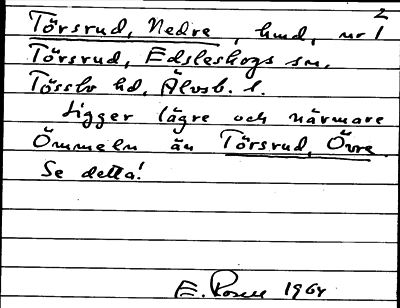 2
Törsrud, Nedre, hmd, nr 1
Törsrud, Edsleskogs sn,
Tössbo hd, Älvsb. l.
Ligger lägre och närmare
Ömmeln än Törsrud, Övre.
Se detta!
E. Rosell 1964